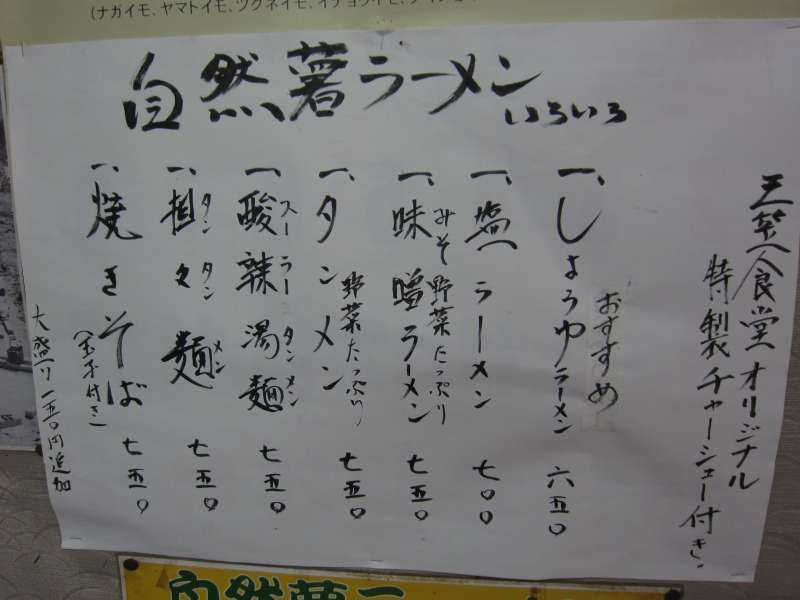 (ナガイモ、ヤマトイモ、ツクネイモ、イチョウイモ、
自然薯ラーメン
いろいろ
食堂オリジナル
特製チャーシュー付き。
おすすめ
一、しょうゆラーメン 六五〇
一、塩ラーメン 七〇〇
一、味噌ラーメン 七五〇
みそ野菜たっぷり
一、タンメン 七五〇
野菜たっぷり
一、酸辣湯麺 七五〇
スーラータンメン
一、担々麺 七五〇
タンタンメン
一、焼きそば 七五〇
(玉子付き)
大盛り一五〇円追加
自然薯